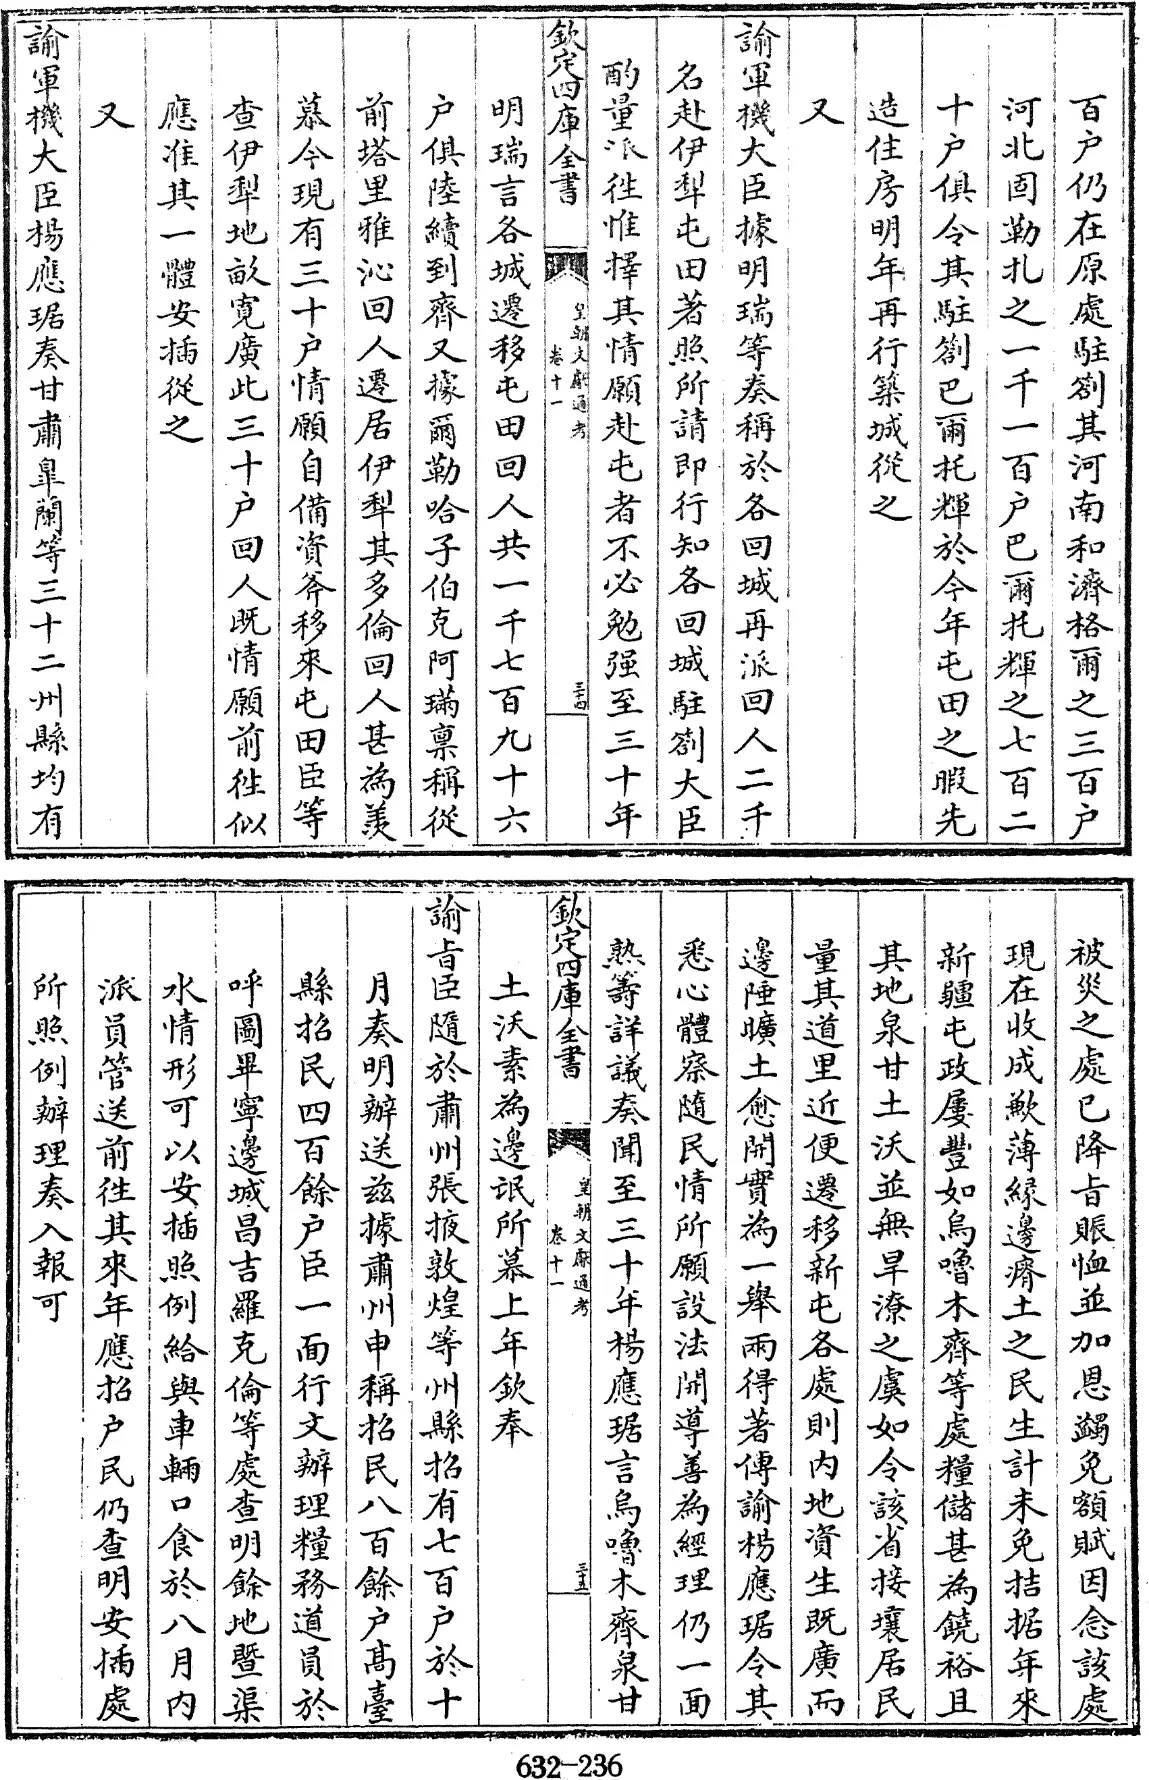 百户仍在原處駐劄其河南和濟格爾之三百户
河北固勒扎之一千一百户巴爾托輝之七百二
十户俱令其駐劄巴爾托輝於今年屯田之暇先
造住房明年再行築城從之
又
諭軍機大臣據明瑞等奏稱於各回城再派回人二千
名赴伊犁屯田著照所請即行知各回城駐劄大臣
酌量派徃惟擇其情願赴屯者不必勉强至三十年
欽定四庫全書
皇朝文獻通考
卷十一
三十四
明瑞言各城遷移屯田回人共一千七百九十六
户俱陸續到齊又據爾勒哈子伯克阿璊禀稱從
前塔里雅沁回人遷居伊犁其多倫回人甚為羨
慕今現有三十户情願自備資斧移來屯田臣等
查伊犁地畝寛廣此三十户回人既情願前徃似
應准其一體安插從之
又
諭軍機大臣楊應琚奏甘肅臯蘭等三十二州縣均有
被災之處已降旨賑恤並加恩蠲免額賦因念該處
現在收成歉薄緣邊瘠土之民生計未免拮据年來
新疆屯政屢豐如烏嚕木齊等處糧儲甚為饒裕且
其地泉甘土沃並無旱潦之虞如令該省接壤居民
量其道里近便遷移新屯各處則内地資生既廣而
邊陲曠土愈開實為一舉兩得著傳諭楊應琚令其
悉心體察隨民情所願設法開導善為經理仍一面
熟籌詳議奏聞至三十年楊應琚言烏嚕木齊泉甘
欽定四庫全書
皇朝文獻通考
卷十一
三十五
土沃素為邊氓所慕上年欽奉
諭旨臣隨於肅州張掖敦煌等州縣招有七百户於十
月奏明辦送兹據肅州申稱招民八百餘户髙臺
縣招民四百餘户臣一面行文辦理糧務道員於
呼圖畢寧邊城昌吉羅克倫等處查明餘地暨渠
水情形可以安插照例給與車輛口食於八月内
派員管送前徃其來年應招户民仍查明安插處
所照例辦理奏入報可
632-236